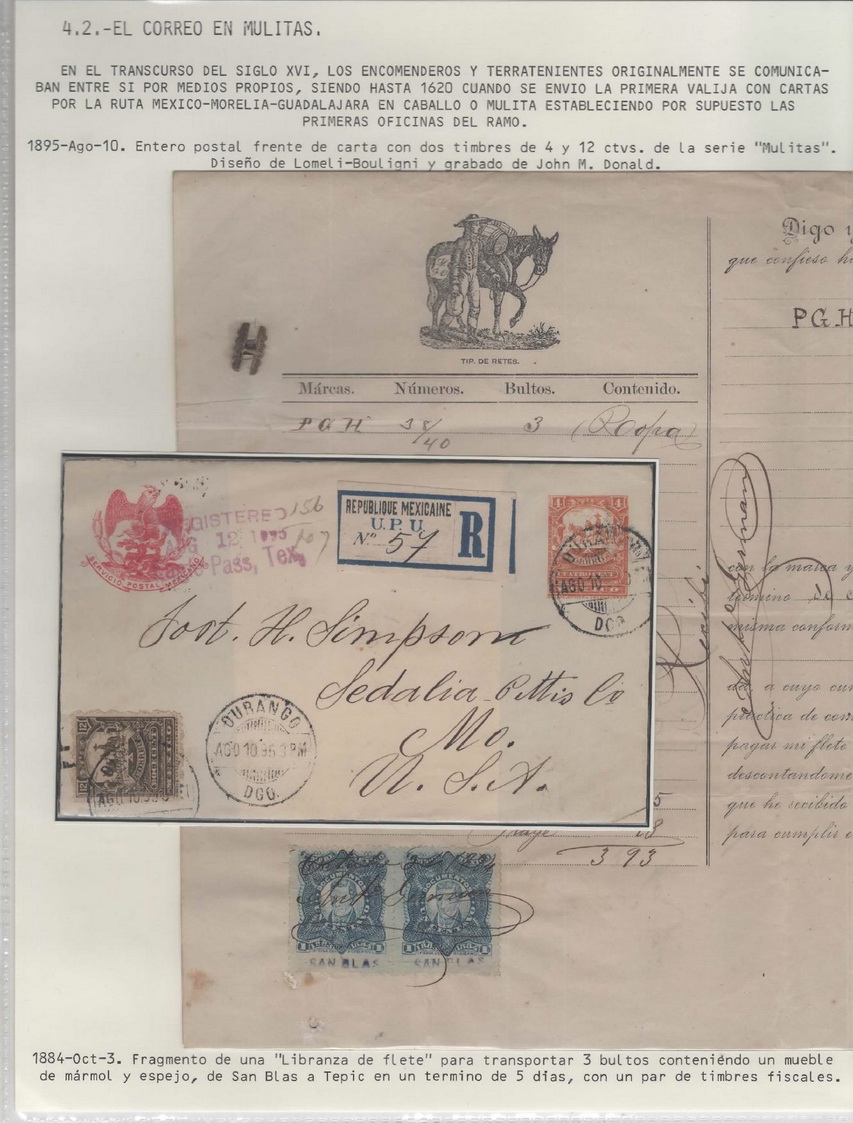 4.2.-EL CORREO EN MULITAS.
EN EL TRANSCURSO DEL SIGLO XVI, LOS ENCOMENDEROS Y TERRATENIENTES ORIGINALMENTE SE COMUNICA-
BAN ENTRE SI POR MEDIOS PROPIOS, SIENDO HASTA 1620 CUANDO SE ENVIO LA PRIMERA VALIJA CON CARTAS
POR LA RUTA MEXICO-MORELIA-GUADALAJARA EN CABALLO O MULITA ESTABLECIENDO POR SUPUESTO LAS
PRIMERAS OFICINAS DEL RAMO.
1895-Ago-10. Entero postal frente de carta con dos timbres de 4 y 12 ctvs. de la serie "Mulitas".
Diseño de Lomelí-Bouligni y grabado de John M. Donald.
TIP. DE RETES.
Márcas. Números. Bultos. Contenido.
PGH 38/40 3 (Ropa)
Digo y
que confieso h
PGH
con la marca y
término de
misma conform
da, a cuyo cum
práctica de com
pagar mi flete
descontandome
que he recibido
para cumplir
Recibí
SERVICIO POSTAL MEXICANO
GISTERED
12 1895
Pass, Tex.
156
107
REPUBLIQUE MEXICAINE
U.P.U
No. 57
R
4 4
DURANGO
AGO 10
DGO.
Jost. H. Simpson
Sedalia Pettis Co
Mo.
U.S.A.
12 12
12 12
AGO 10
DURANGO
AGO 10 95 3 PM
DGO.
5
18
3 93
SAN BLAS SAN BLAS
1884-Oct-3. Fragmento de una "Libranza de flete" para transportar 3 bultos conteniéndo un mueble
de mármol y espejo, de San Blas a Tepic en un termino de 5 dias, con un par de timbres fiscales.